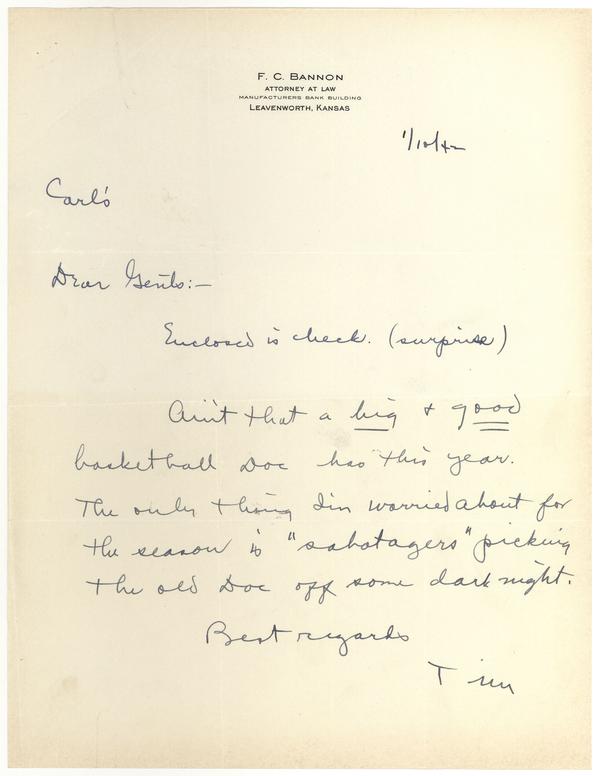 F. C. BANNON
ATTORNEY AT LAW
MANUFACTURERS BANK BUILDING
LEAVENWORTH, KANSAS
1/10/42
Carl's
Dear Gents:—
Enclosed is check. (surprise)
Ain't that a big & good
basketball Doc has this year.
The only thing I'm worried about for
the season is "sabotagers" picking
the old Doc off some dark night.
Best regards
Tim